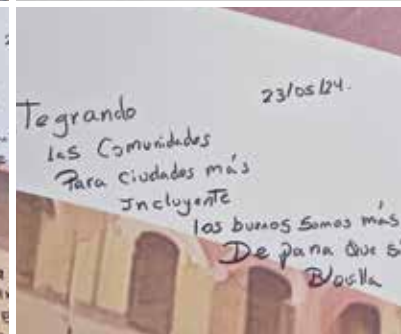 23/05/24.
Tegrando
las Comunidades
Para Ciudades más
Incluyente
los buenos somos más
De pana Que